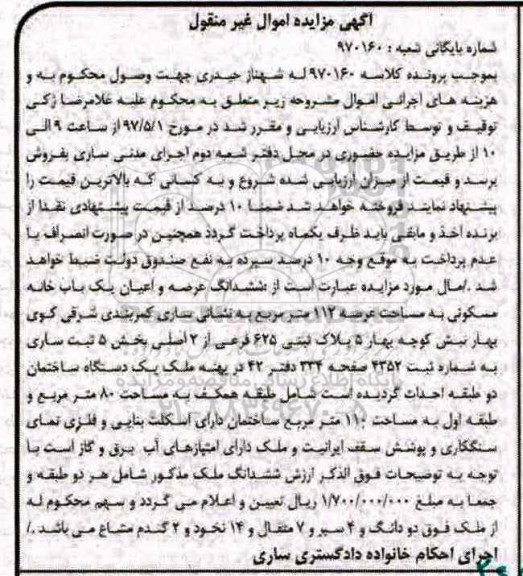 آگهی مزایده اموال غیر منقول
شماره بایگانی شعبه : ۹۷۰۱۶۰
بموجب پرونده کلاسه ۹۷۰۱۶۰ له شهناز حیدری جهت وصول محکوم به و
هزینه های اجرائی اموال مشروحه زیر متعلق به محکوم علیه غلامرضا زکی
توقیف و توسط کارشناس ارزیابی و مقرر شد در مورخ ۹۷/۵/۱ از ساعت ۹ الی
۱۰ از طریق مزایده حضوری در محل دفتر شعبه دوم اجرای مدنی ساری بفروش
برسد و قیمت از میزان ارزیابی شده شروع و به کسانی که بالاترین قیمت را
پیشنهاد نمایند فروخته خواهد شد ضمنا ۱۰ درصد از قیمت پیشنهادی نقدا از
برنده اخذ و مابقی باید ظرف یکماه پرداخت گردد همچنین در صورت انصراف یا
عدم پرداخت به موقع وجه ۱۰ درصد سپرده به نفع صندوق دولت ضبط خواهد
شد ./مال مورد مزایده عبارت است از :ششدانگ عرصه و اعیان یک باب خانه
مسکونی به مساحت عرصه ۱۱۲ متر مربع به نشانی ساری کمربندی شرقی کوی
بهار نبش کوچه بهار ۵ پلاک ثبتی ۶۲۵ فرعی از ۲ اصلی بخش ۵ ثبت ساری
به شماره ثبت ۴۳۵۲ صفحه ۳۳۴ دفتر ۴۲ در پهنه ملک یک دستگاه ساختمان
دو طبقه احداث گردیده است شامل طبقه همکف به مساحت ۸۰ متر مربع و
طبقه اول به مساحت ۱۱۰ متر مربع ساختمان دارای اسکلت بنایی و فلزی نمای
سنگکاری و پوشش سقف ایرانیت و ملک دارای امتیازهای آب برق و گاز است با
توجه به توضیحات فوق الذکر ارزش ششدانگ ملک مذکور شامل هر دو طبقه و
جمعا به مبلغ ۱/۷۰۰/۰۰۰/۰۰۰ ریال تعیین و اعلام می گردد و سهم محکوم له
از ملک فوق دو دانگ و ۴ سیر و ۷ مثقال و ۱۴ نخود و ۲ گندم مشاع می باشد ./
اجرای احکام خانواده دادگستری ساری